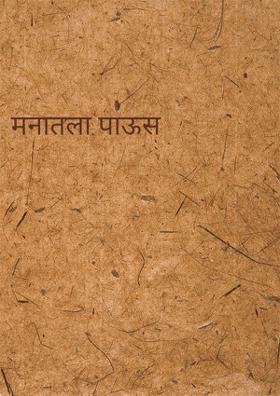 मनातला पाऊस